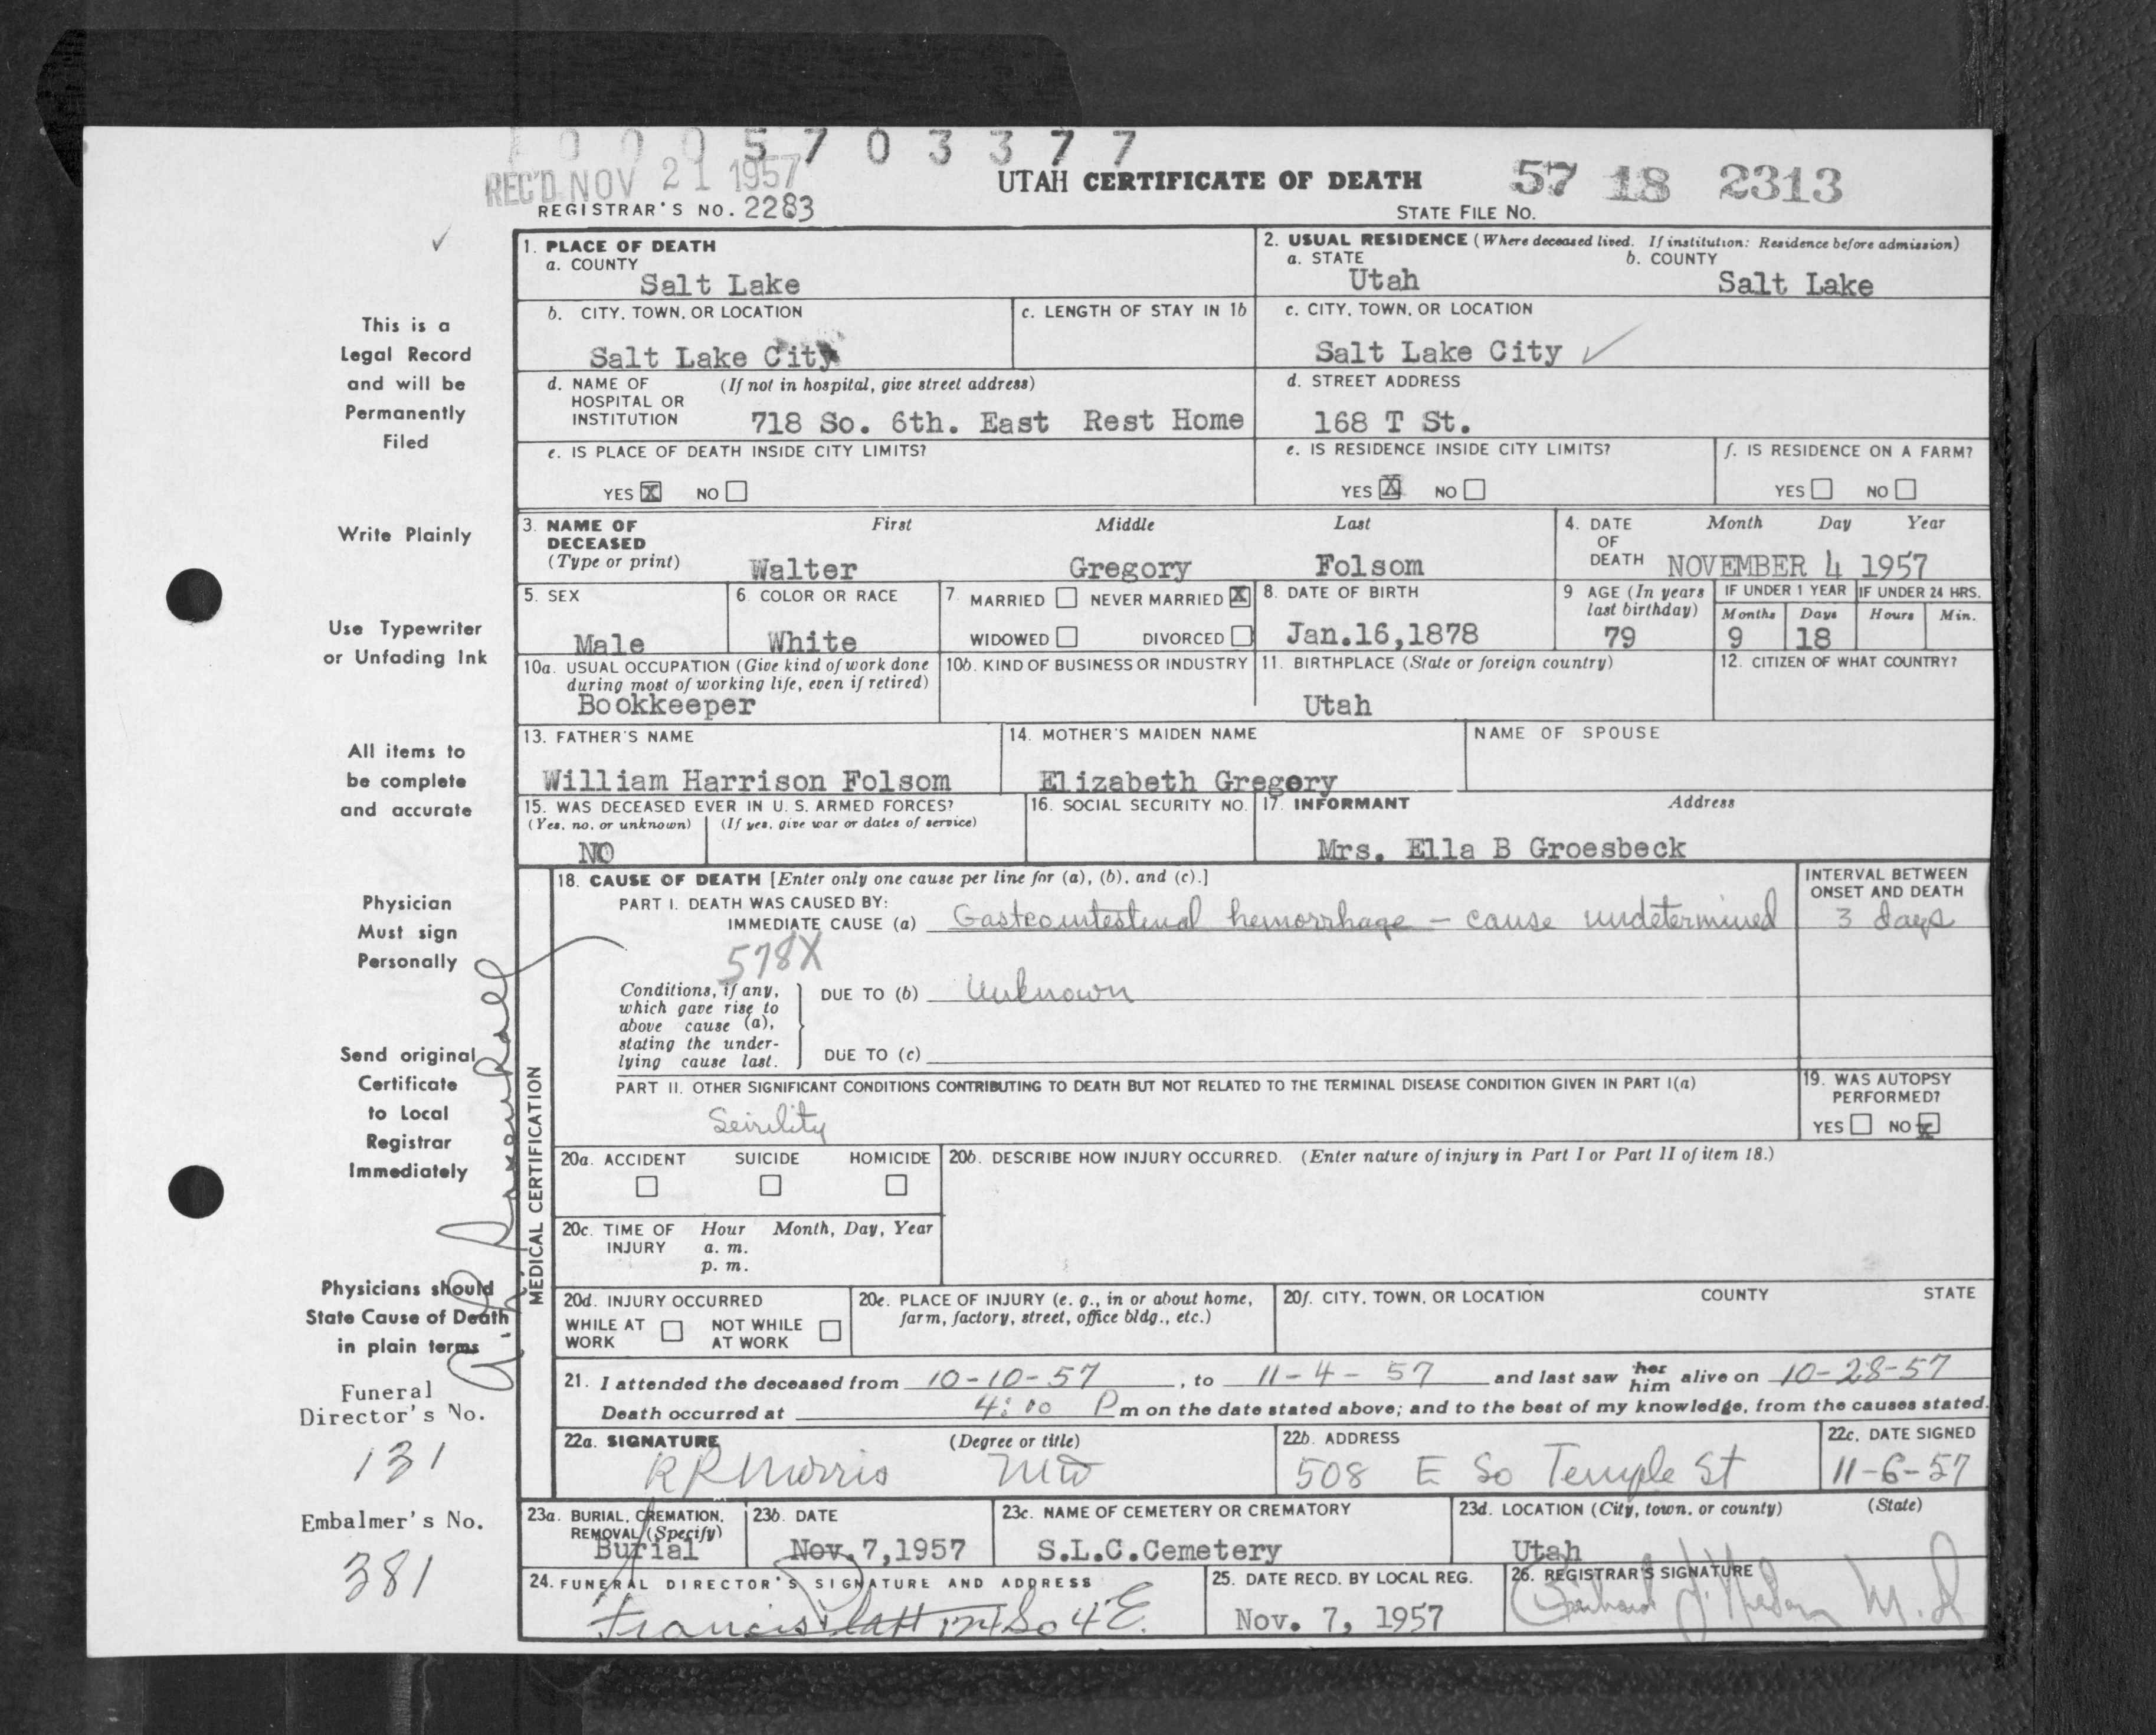 5 7 0 3 3 7 7
REC'D NOV 21 1957
UTAH CERTIFICATE OF DEATH
57 18 2313
REGISTRAR'S NO. 2283
STATE FILE NO.
This is a
Legal Record
and will be
Permanently
Filed
Write Plainly
Use Typewriter
or Unfading Ink
All items to
be complete
and accurate
Physician
Must sign
Personally
Send original
Certificate
to Local
Registrar
Immediately
Physicians should
State Cause of Death
in plain terms
Funeral
Director's No.
131
Embalmer's No.
381
1. PLACE OF DEATH
a. COUNTY
Salt Lake
2. USUAL RESIDENCE (Where deceased lived. If institution: Residence before admission)
a. STATE b. COUNTY
Utah Salt Lake
b. CITY, TOWN, OR LOCATION
Salt Lake City
c. LENGTH OF STAY IN 1b
c. CITY, TOWN, OR LOCATION
Salt Lake City ✓
d. NAME OF (If not in hospital, give street address)
HOSPITAL OR
INSTITUTION 718 So. 6th. East Rest Home
d. STREET ADDRESS
168 T St.
e. IS PLACE OF DEATH INSIDE CITY LIMITS?
YES X NO
e. IS RESIDENCE INSIDE CITY LIMITS?
YES X NO
f. IS RESIDENCE ON A FARM?
YES NO
3. NAME OF First Middle Last
DECEASED
(Type or print) Walter Gregory Folsom
4. DATE Month Day Year
OF
DEATH NOVEMBER 4 1957
5. SEX
Male
6. COLOR OR RACE
White
7. MARRIED NEVER MARRIED X
WIDOWED DIVORCED
8. DATE OF BIRTH
Jan.16,1878
9 AGE (In years
last birthday)
79
IF UNDER 1 YEAR IF UNDER 24 HRS.
Months Days Hours Min.
9 18
10a. USUAL OCCUPATION (Give kind of work done
during most of working life, even if retired)
Bookkeeper
10b. KIND OF BUSINESS OR INDUSTRY
11. BIRTHPLACE (State or foreign country)
Utah
12. CITIZEN OF WHAT COUNTRY?
13. FATHER'S NAME
William Harrison Folsom
14. MOTHER'S MAIDEN NAME
Elizabeth Gregory
NAME OF SPOUSE
15. WAS DECEASED EVER IN U. S. ARMED FORCES?
(Yes, no, or unknown) (If yes, give war or dates of service)
NO
16. SOCIAL SECURITY NO.
17. INFORMANT Address
Mrs. Ella B Groesbeck
MEDICAL CERTIFICATION
18. CAUSE OF DEATH [Enter only one cause per line for (a), (b), and (c).]
PART I. DEATH WAS CAUSED BY:
IMMEDIATE CAUSE (a) Gastrointestinal hemorrhage – cause undetermined
INTERVAL BETWEEN
ONSET AND DEATH
3 days
578X
Conditions, if any,
which gave rise to
above cause (a),
stating the under-
lying cause last.
DUE TO (b) Unknown
DUE TO (c)
PART II. OTHER SIGNIFICANT CONDITIONS CONTRIBUTING TO DEATH BUT NOT RELATED TO THE TERMINAL DISEASE CONDITION GIVEN IN PART I(a)
Seinility
19. WAS AUTOPSY
PERFORMED?
YES NO X
20a. ACCIDENT SUICIDE HOMICIDE
20b. DESCRIBE HOW INJURY OCCURRED. (Enter nature of injury in Part I or Part II of item 18.)
20c. TIME OF Hour Month, Day, Year
INJURY a. m.
p. m.
20d. INJURY OCCURRED
WHILE AT NOT WHILE
WORK AT WORK
20e. PLACE OF INJURY (e. g., in or about home,
farm, factory, street, office bldg., etc.)
20f. CITY, TOWN, OR LOCATION COUNTY STATE
21. I attended the deceased from 10-10-57, to 11-4-57 and last saw her him alive on 10-28-57
Death occurred at 4:00 P m on the date stated above; and to the best of my knowledge, from the causes stated.
22a. SIGNATURE (Degree or title)
R R Morris MD
22b. ADDRESS
508 E So Temple St
22c. DATE SIGNED
11-6-57
23a. BURIAL, CREMATION,
REMOVAL (Specify)
Burial
23b. DATE
Nov.7,1957
23c. NAME OF CEMETERY OR CREMATORY
S.L.C.Cemetery
23d. LOCATION (City, town, or county) (State)
Utah
24. FUNERAL DIRECTOR'S SIGNATURE AND ADDRESS
Francis So 4 E.
25. DATE RECD. BY LOCAL REG.
Nov. 7, 1957
26. REGISTRAR'S SIGNATURE
M.D